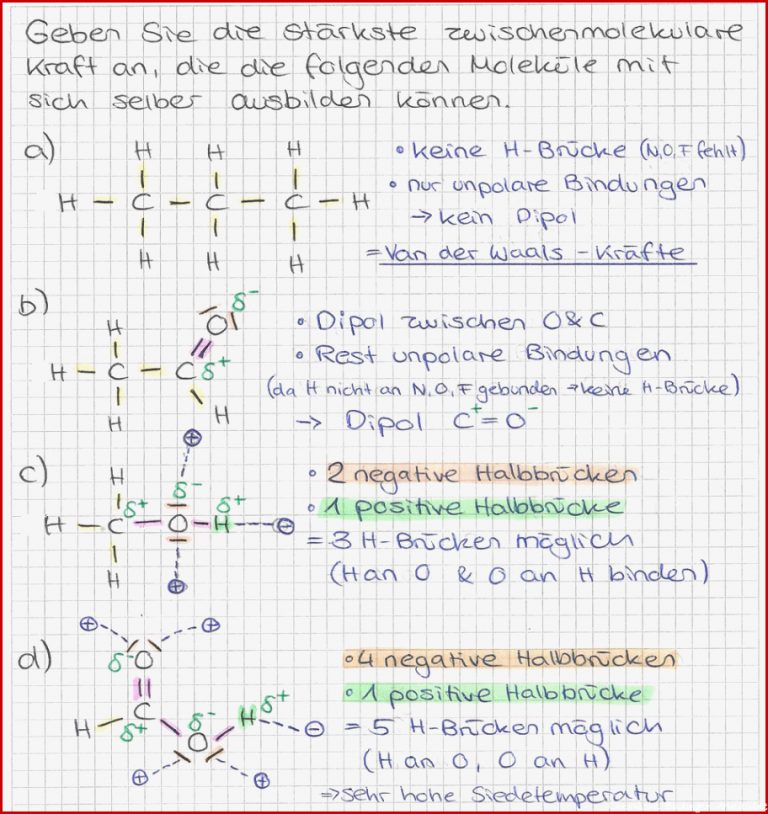 Geben Sie die stärkste zwischenmolekulare
Kraft an, die die folgenden Moleküle mit
sich selber ausbilden können.
a)
H H H
H – C – C – C – H
H H H
• keine H-Brücke (N,O,F fehlt)
• nur unpolare Bindungen
→ kein Dipol
= Van der Waals - Kräfte
b)
H O δ-
H – C – C δ+
H H
• Dipol zwischen O & C
• Rest unpolare Bindungen
(da H nicht an N, O, F gebunden → keine H-Brücke)
→ Dipol C+ = O-
c)
⊕
H δ+ δ- δ+
H – C – O – H ---⊖
H ⊕
• 2 negative Halbbrücken
• 1 positive Halbbrücke
= 3 H-Brücken möglich
(H an O & O an H binden)
d)
⊕ ⊕
δ- O
H C δ+ δ- O H δ+ ---⊖
⊕ ⊕
• 4 negative Halbbrücken
• 1 positive Halbbrücke
= 5 H-Brücken möglich
(H an O, O an H)
⇒ sehr hohe Siedetemperatur